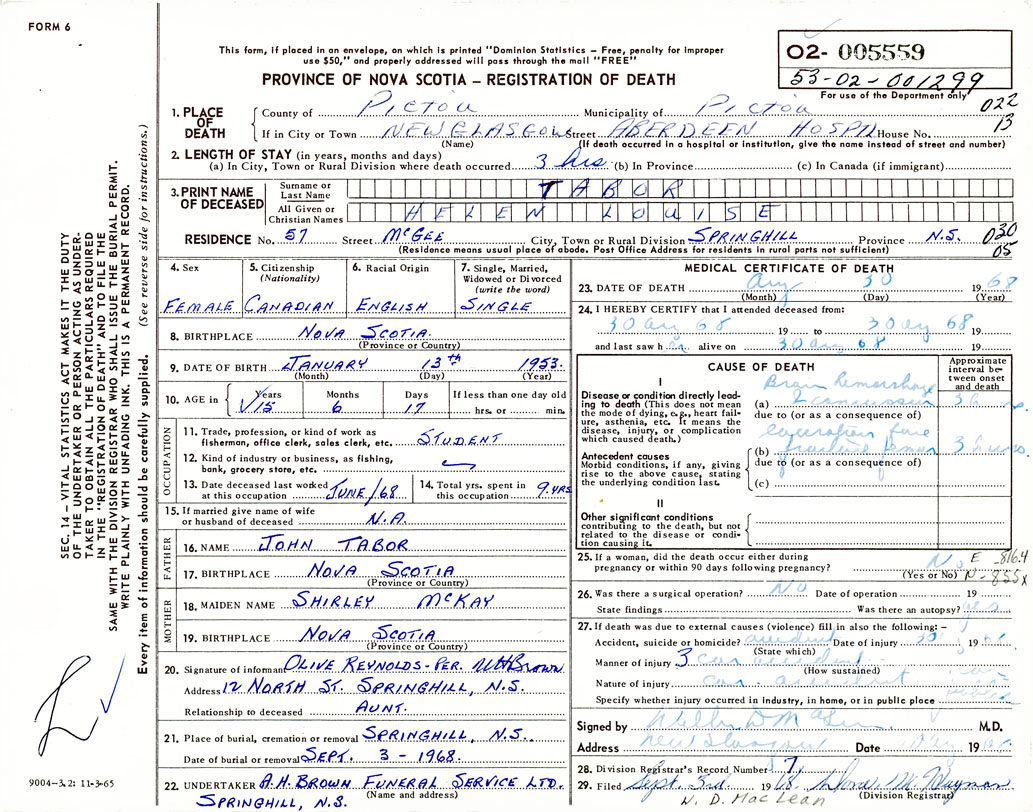 FORM 6
This form, if placed in an envelope, on which is printed "Dominion Statistics – Free, penalty for improper
use $50," and properly addressed will pass through the mail "FREE"
PROVINCE OF NOVA SCOTIA – REGISTRATION OF DEATH
02- 005559
53-02-001299
For use of the Department only
022
13
1. PLACE OF DEATH
County of Pictou Municipality of Pictou
If in City or Town NEW GLASGOW Street ABERDEEN HOSPN House No.
(Name) (If death occurred in a hospital or institution, give the name instead of street and number)
2. LENGTH OF STAY (in years, months and days)
(a) In City, Town or Rural Division where death occurred 3 hrs (b) In Province (c) In Canada (if immigrant)
3. PRINT NAME OF DECEASED
Surname or Last Name TABOR
All Given or Christian Names HELEN LOUISE
RESIDENCE No. 57 Street McGEE City, Town or Rural Division SPRINGHILL Province N.S. 030
05
(Residence means usual place of abode. Post Office Address for residents in rural parts not sufficient)
4. Sex FEMALE
5. Citizenship (Nationality) CANADIAN
6. Racial Origin ENGLISH
7. Single, Married, Widowed or Divorced (write the word) SINGLE
8. BIRTHPLACE NOVA SCOTIA.
(Province or Country)
9. DATE OF BIRTH JANUARY 13th 1953.
(Month) (Day) (Year)
10. AGE in Years Months Days If less than one day old
15 6 17 hrs. or min.
OCCUPATION
11. Trade, profession, or kind of work as
fisherman, office clerk, sales clerk, etc. STUDENT
12. Kind of industry or business, as fishing,
bank, grocery store, etc.
13. Date deceased last worked at this occupation JUNE/68
14. Total yrs. spent in this occupation 9.YRS
15. If married give name of wife
or husband of deceased N.A.
FATHER
16. NAME JOHN TABOR
17. BIRTHPLACE NOVA SCOTIA
(Province or Country)
MOTHER
18. MAIDEN NAME SHIRLEY McKAY
19. BIRTHPLACE NOVA SCOTIA
(Province or Country)
20. Signature of informant OLIVE REYNOLDS-PER. WHBrown
Address 12 NORTH ST. SPRINGHILL, N.S.
Relationship to deceased AUNT.
21. Place of burial, cremation or removal SPRINGHILL, N.S.
Date of burial or removal SEPT. 3-1968.
22. UNDERTAKER A.H. BROWN FUNERAL SERVICE LTD.
(Name and address)
SPRINGHILL, N.S.
MEDICAL CERTIFICATE OF DEATH
23. DATE OF DEATH Aug 30 1968
(Month) (Day) (Year)
24. I HEREBY CERTIFY that I attended deceased from:
30 Aug 68 19 to 30 Aug 68 19
and last saw her alive on 30 Aug 68 19
CAUSE OF DEATH
Approximate interval between onset and death
I
Disease or condition directly leading to death (This does not mean the mode of dying, e.g., heart failure, asthenia, etc. It means the disease, injury, or complication which caused death.)
(a) Brain hemorrhage
due to (or as a consequence of)
Antecedent causes
Morbid conditions, if any, giving rise to the above cause, stating the underlying condition last.
(b) fracture femur 3 hours
due to (or as a consequence of)
(c)
II
Other significant conditions
contributing to the death, but not related to the disease or condition causing it.
25. If a woman, did the death occur either during
pregnancy or within 90 days following pregnancy? No E-816.4
(Yes or No) N-855X
26. Was there a surgical operation? No Date of operation 19
State findings Was there an autopsy? yes
27. If death was due to external causes (violence) fill in also the following: –
Accident, suicide or homicide? accident Date of injury 30 19
(State which)
Manner of injury 3 car accident
(How sustained)
Nature of injury car accident
Specify whether injury occurred in industry, in home, or in public place public
Signed by M.D.
Address New Glasgow Date 19
28. Division Registrar's Record Number 7
29. Filed Sept. 3rd 1968
(Division Registrar)
W. D. MacLean
SEC. 14 – VITAL STATISTICS ACT MAKES IT THE DUTY
OF THE UNDERTAKER OR PERSON ACTING AS UNDER-
TAKER TO OBTAIN ALL THE PARTICULARS REQUIRED
IN THE "REGISTRATION OF DEATH" AND TO FILE THE
SAME WITH THE DIVISION REGISTRAR WHO SHALL ISSUE THE BURIAL PERMIT.
WRITE PLAINLY WITH UNFADING INK. THIS IS A PERMANENT RECORD.
Every item of information should be carefully supplied. (See reverse side for instructions.)
9004-3.2: 11-3-65